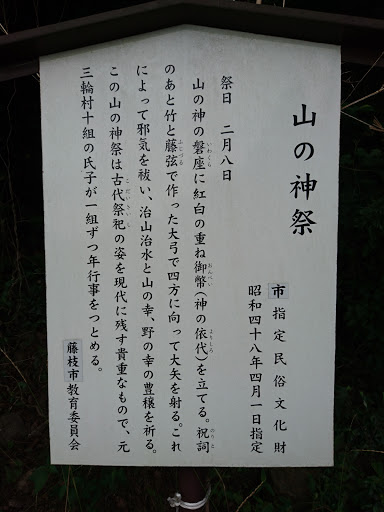 山の神祭
市指定民俗文化財
昭和四十八年四月一日指定
祭日 二月八日
山の神の磐座に紅白の重ね御幣(神の依代)を立てる。祝詞
のあと竹と藤弦で作った大弓で四方に向って大矢を射る。これ
によって邪気を祓い、治山治水と山の幸、野の幸の豊穣を祈る。
この山の神祭は古代祭祀の姿を現代に残す貴重なもので、元
三輪村十組の氏子が一組ずつ年行事をつとめる。
藤枝市教育委員会